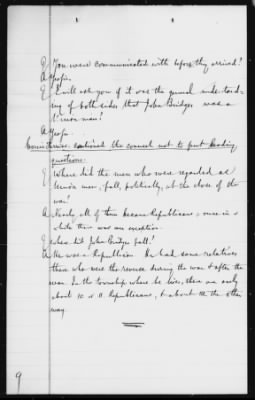 Q You were communicated with before they arrived?
A Yes sir.
Q I will ask you if it was the general understand-
ing of both sides that John Bridges was a
Union man?
A Yes sir.
Commissioner cautioned the counsel not to put leading
questions.
Q Where did the men who were regarded as
Union men, fall, politically, at the close of the
war.
A Nearly all of them became Republicans, once in a
while there was an exception.
Q Where did John Bridges fall?
A He was a Republican. He had some relatives
there who were the reverse during the war & after the
war. In the township where he lives, there are only
about 10 or 11 Republicans, & about the other
way.
9